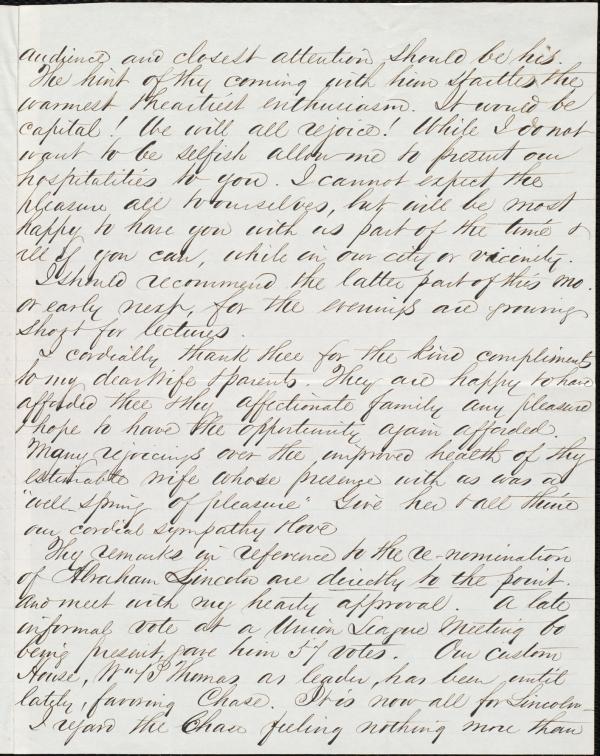 audience and closest attention should be his.
The hint of thy coming with him excites the
warmest & heartiest enthusiasm. It would be
capital! We will all rejoice! While I do not
want to be selfish allow me to present our
hospitalities to you. I cannot expect the
pleasure all to ourselves, but will be most
happy to have you with us part of the time &
all if you can, while in our city or vicinity.
I should recommend the latter part of this mo.
or early next, for the evenings are growing
short for lectures.
I cordially thank thee for the kind compliments
to my dear wife & parents. They are happy to have
afforded thee & thy affectionate family any pleasure
& hope to have the opportunity again afforded.
Many rejoicings over the improved health of thy
estimable wife whose presence with us was a
"well spring of pleasure" Give her & all thine
our cordial sympathy & love
Thy remarks in reference to the re-nomination
of Abraham Lincoln are directly to the point.
and meet with my hearty approval. A late
informal vote at a Union League Meeting 60
being present, gave him 57 votes. Our Custom
House, Wm P Thomas as leader, has been until
lately, favoring Chase. It is now all for Lincoln
I regard the Chase feeling nothing more than